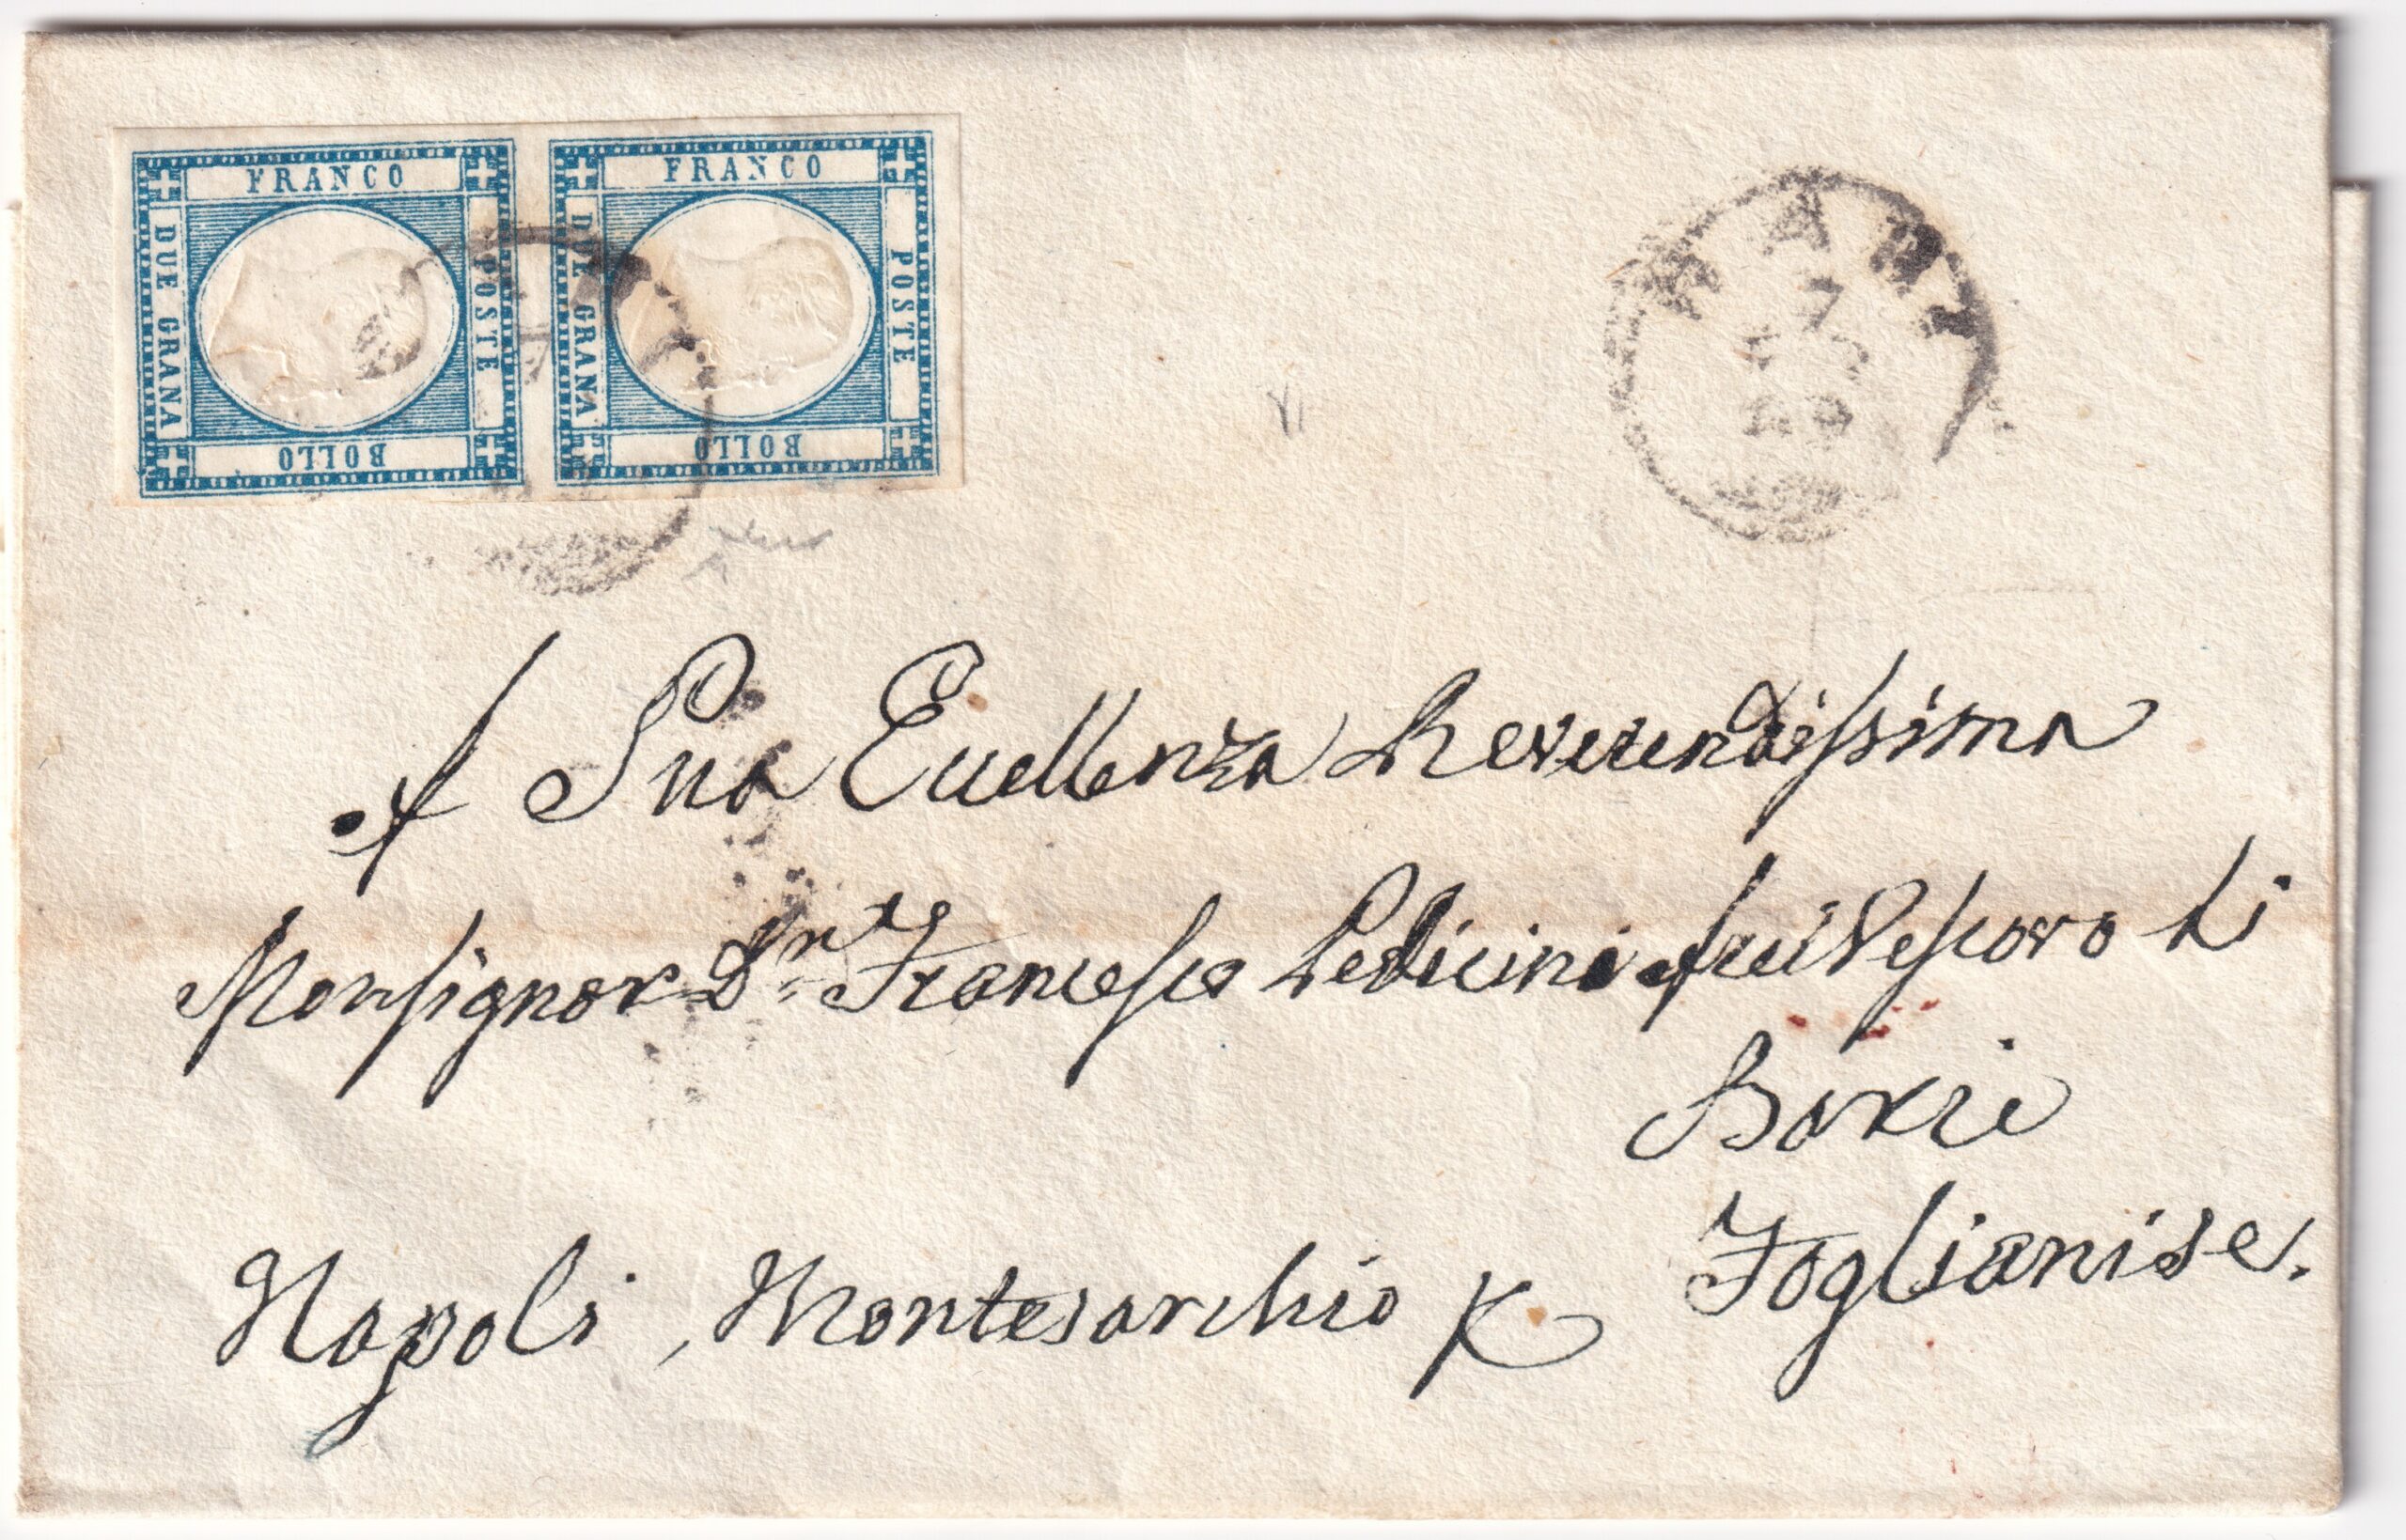 FRANCO
DUE GRANA
POSTE
BOLLO
FRANCO
DUE GRANA
POSTE
BOLLO
7
A Sua Eccellenza Reverendissima
Monsignor D.n Francesco Pedicini Arcivescovo di
Barie
Foglianise.
Napoli, Montesarchio